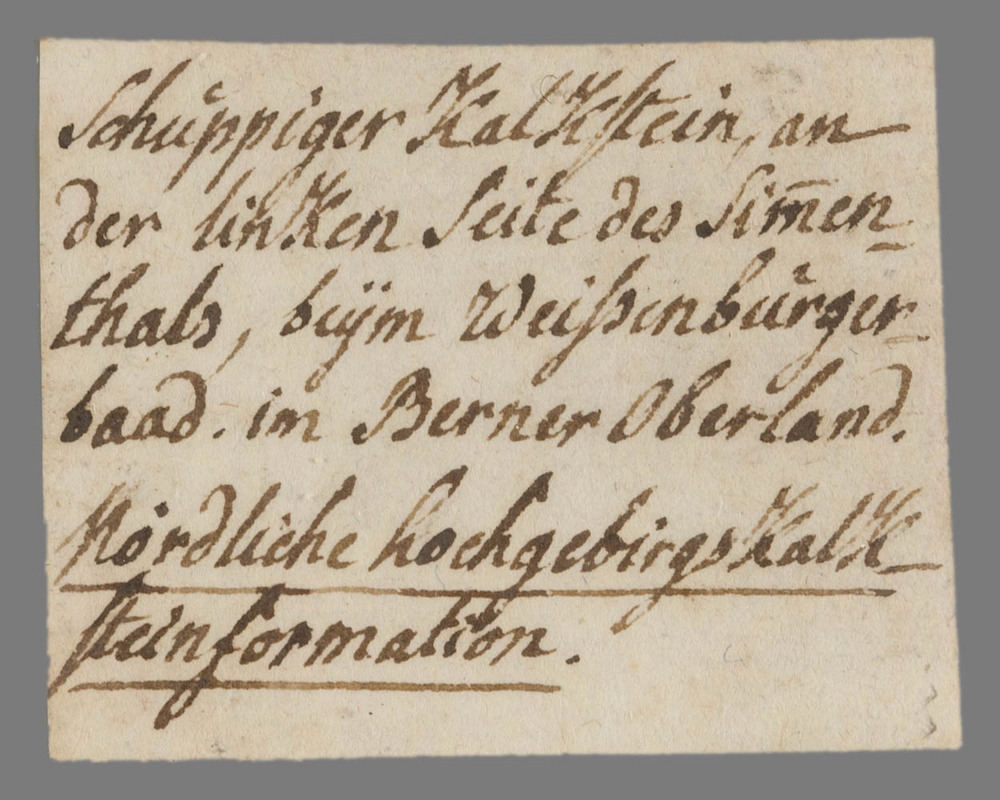 Schüppiger Kalkstein, an
der linken Seite des Sim̄en-
thals, beÿm Weißenbürger-
baad. im Berner Oberland.
Nördliche hochgebirgskalk-
steinformation.